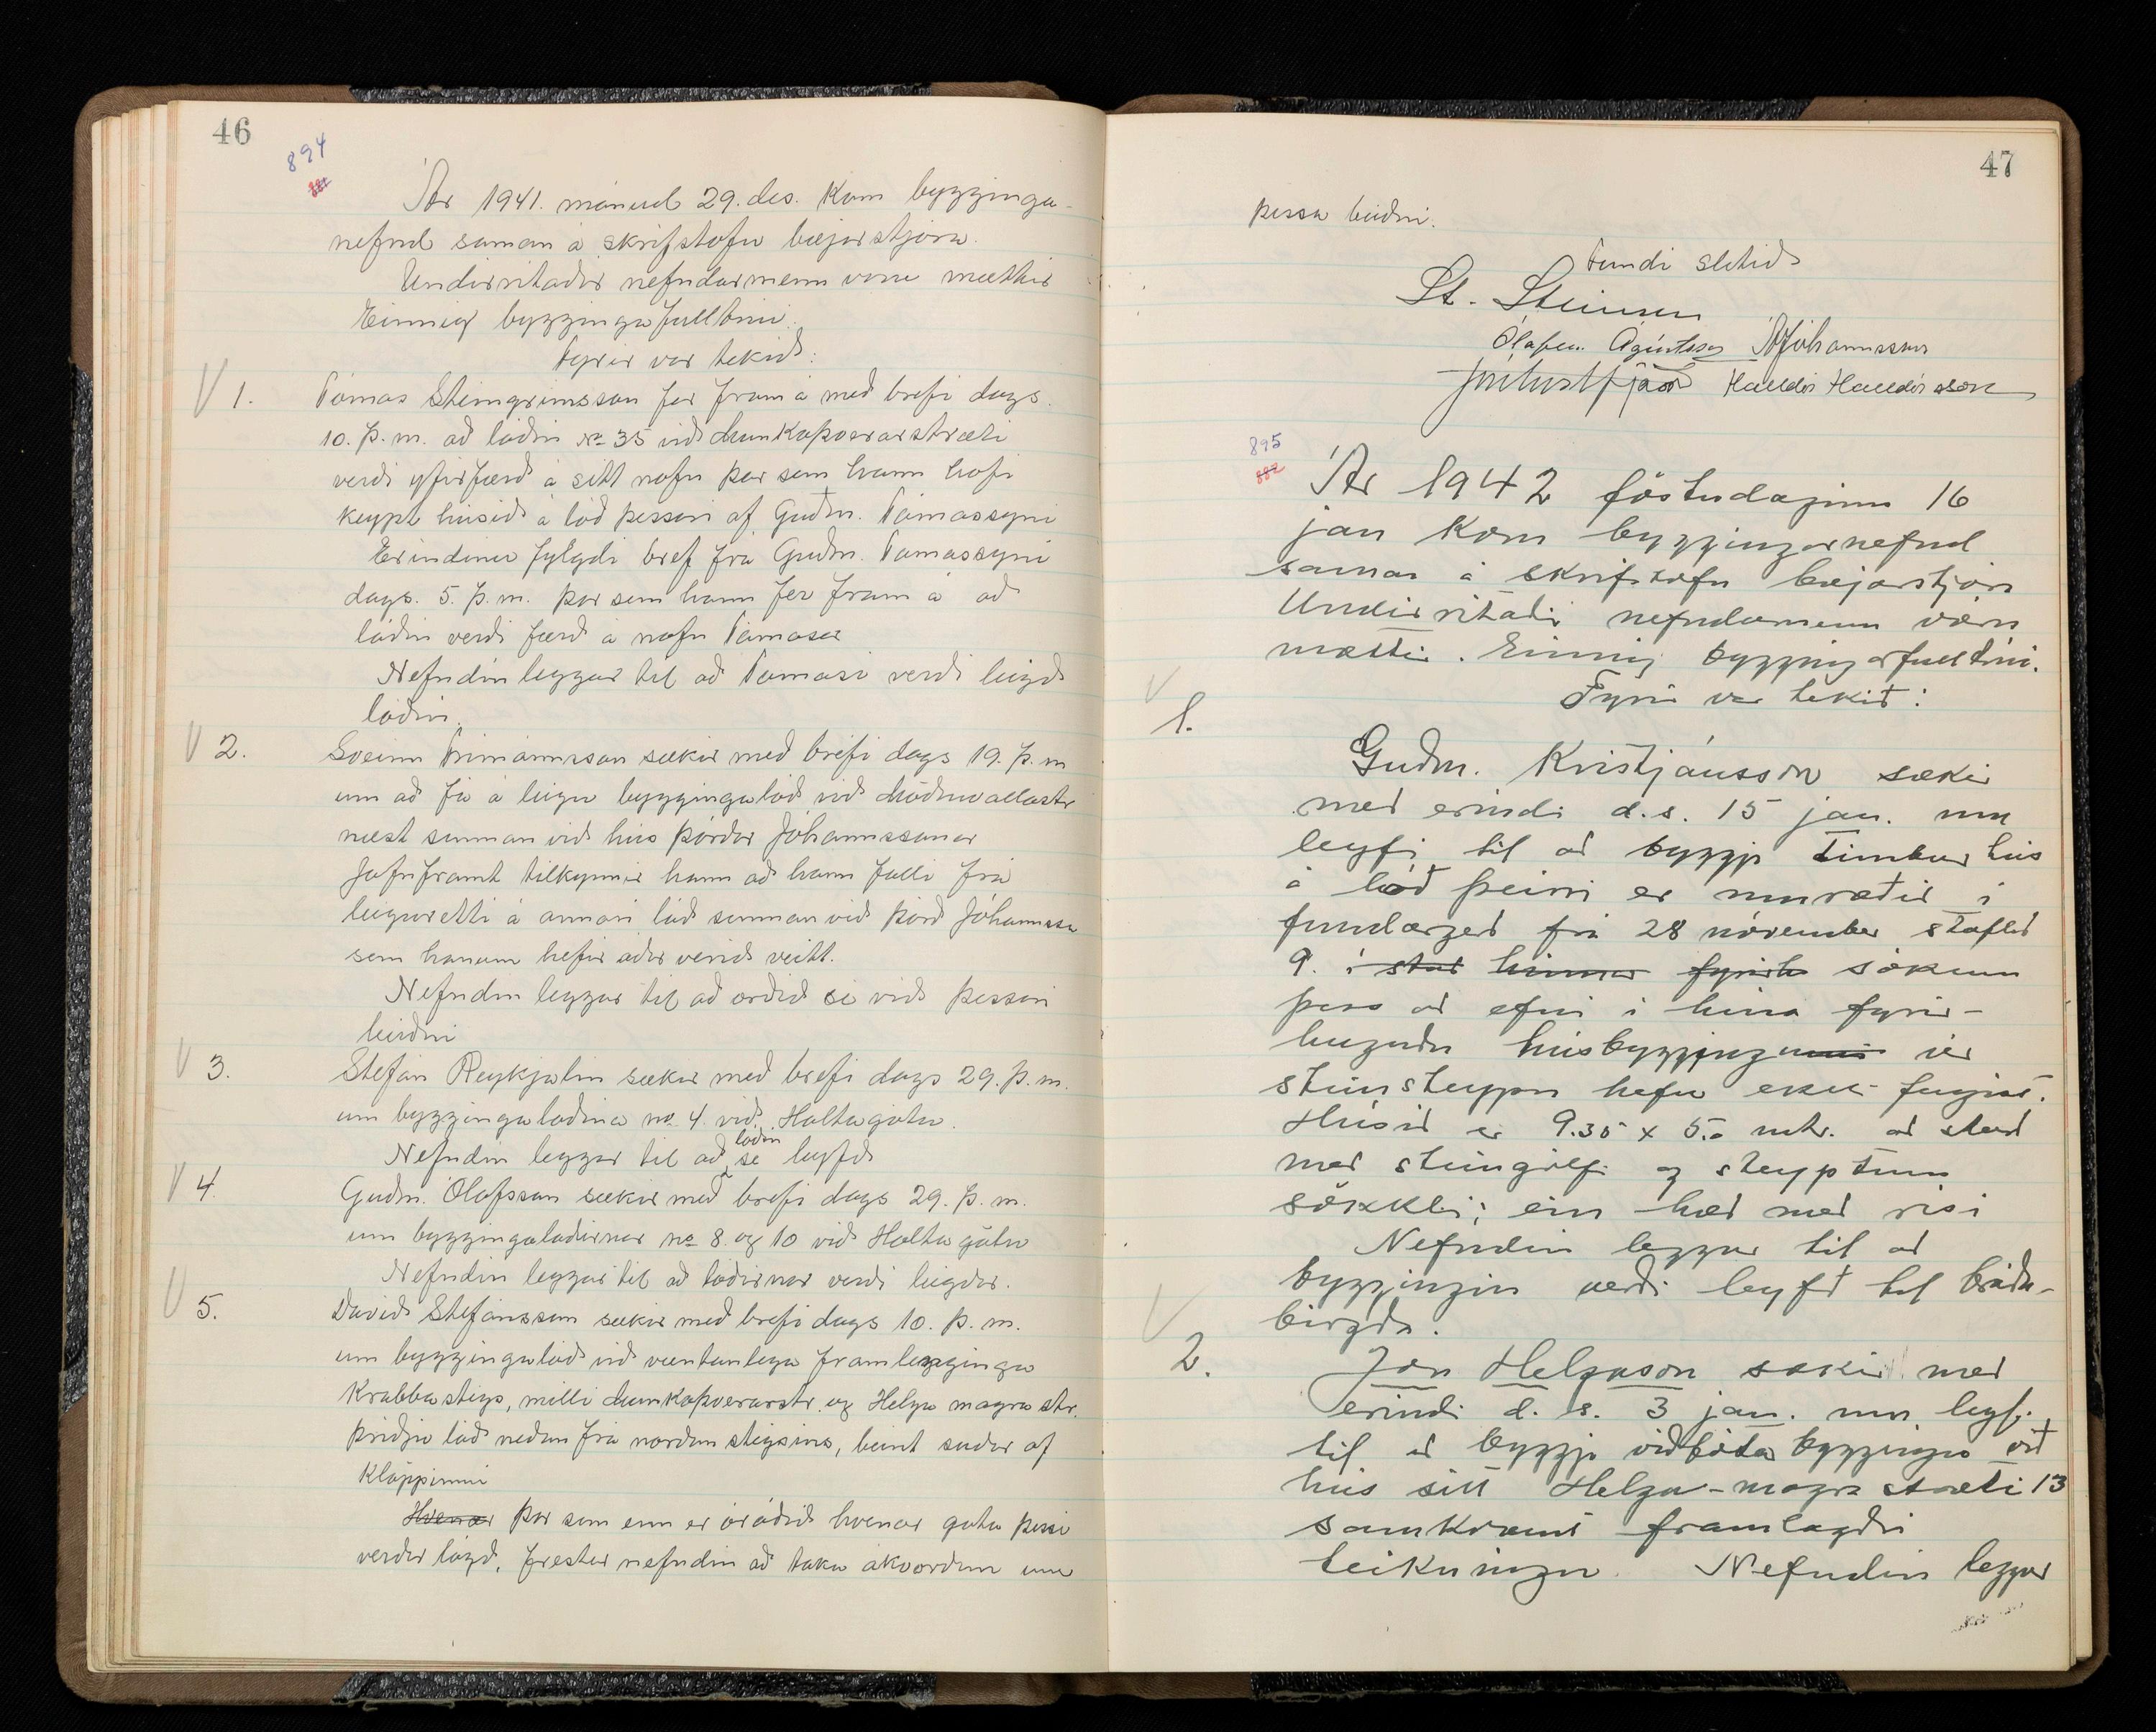 46
894
881
Ár 1941. mánud 29. des. kom bygginga-
nefnd saman á skrifstofu bæjarstjóra.
Undirritaðir nefndarmenn voru mættir
Einnig byggingafulltrúi.
Fyrir var tekið:
V 1. Tómas Steingrímsson fer fram á með brefi dags.
10. þ.m. að lóðin No 35 við Munkaþverarstræti
verði yfirfærð á sitt nafn þar sem hann hafi
keypt húsið á lóð þessari af Guðm. Tómassyni
Erindinu fylgdi bref frá Guðm. Tómassyni
dags. 5. þ.m. þar sem hann fer fram á að
lóðin verði færð á nafn Tómasar
Nefndin leggur til að Tómasi verði leigð
lóðin.
V 2. Sveinn Frímannsson sækir með brefi dags 19. þ.m
um að fá á leigu byggingalóð við Möðruvallastr
næst sunnan við hús Þórðar Jóhannssonar
Jafnframt tilkynnir hann að hann falli frá
leigurétti á annari lóð sunnan við Þórð Jóhannsso
sem honum hefir áður verið veitt.
Nefndin leggur til að orðið sé við þessari
beiðni
V 3. Stefán Reykjalín sækir með brefi dags 29. þ.m.
um byggingalóðina no. 4. við Holtagötu.
lóðin
Nefndin leggur til að sé leyfð
V 4. Guðm. Ólafsson sækir með brefi dags 29. þ.m.
um byggingalóðirnar no 8. og 10 við Holtagötu
Nefndin leggur til að lóðirnar verði leigðar.
V 5. Davíð Stefánsson sækir með brefi dags 10. þ.m.
um byggingalóð við væntanlega framlengingu
Krabbastígs, milli Munkaþverarstr. og Helga magra str.
þriðju lóð neðan frá norðan stígsins, beint suður af
Klöppinni
Hvenær þar sem enn er óráðið hvenær gata þessi
verður lögð, frestar nefndin að taka ákvörðun um
47
þessa beiðni.
Fundi slitið
St. Steinsen
Ólafur Ágústsson Jóhannsson
Halldór Halldórsson
895
882
Ár 1942 föstudaginn 16
jan kom byggingarnefnd
saman á skrifstofu bæjarstjóra
Undirritaðir nefndarmenn voru
mættir. Einnig byggingarfulltrúi.
Fyrir var tekið:
V 1.
Guðm. Kristjánsson sækir
með erindi d.s. 15 jan. um
leyfi til að byggja timburhús
á lóð þeirri er umrætir í
fundargerð frá 28 nóvember staflið
9. í stað hinnar fyrirh sökum
þess að efni í hina fyrir-
huguðu húsbyggingu úr
steinsteypu hefur ekki fengist.
Húsið er 9.35 x 5.0 mtr. að stærð
með steingólfi og steyptum
sökkli; ein hæð með risi
Nefndin leggur til að
byggingin verði leyfð til bráða-
birgða.
V 2.
Jón Helgason sækir með
erindi d. s. 3 jan. um leyfi
til að byggja viðbótar byggingu við
hús sitt Helga-magra stræti 13
samkvæmt framlagðri
teikningu. Nefndin leggur